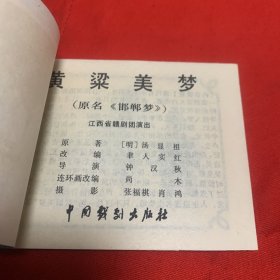 黄粱美梦
(原名《邯郸梦》)
江西省赣剧团演出
原著 [明]汤显祖
改编 聿人实红
导演 钟汉秋
连环画改编 尚木
摄影 张福祺 肖鸿
中国戏剧出版社